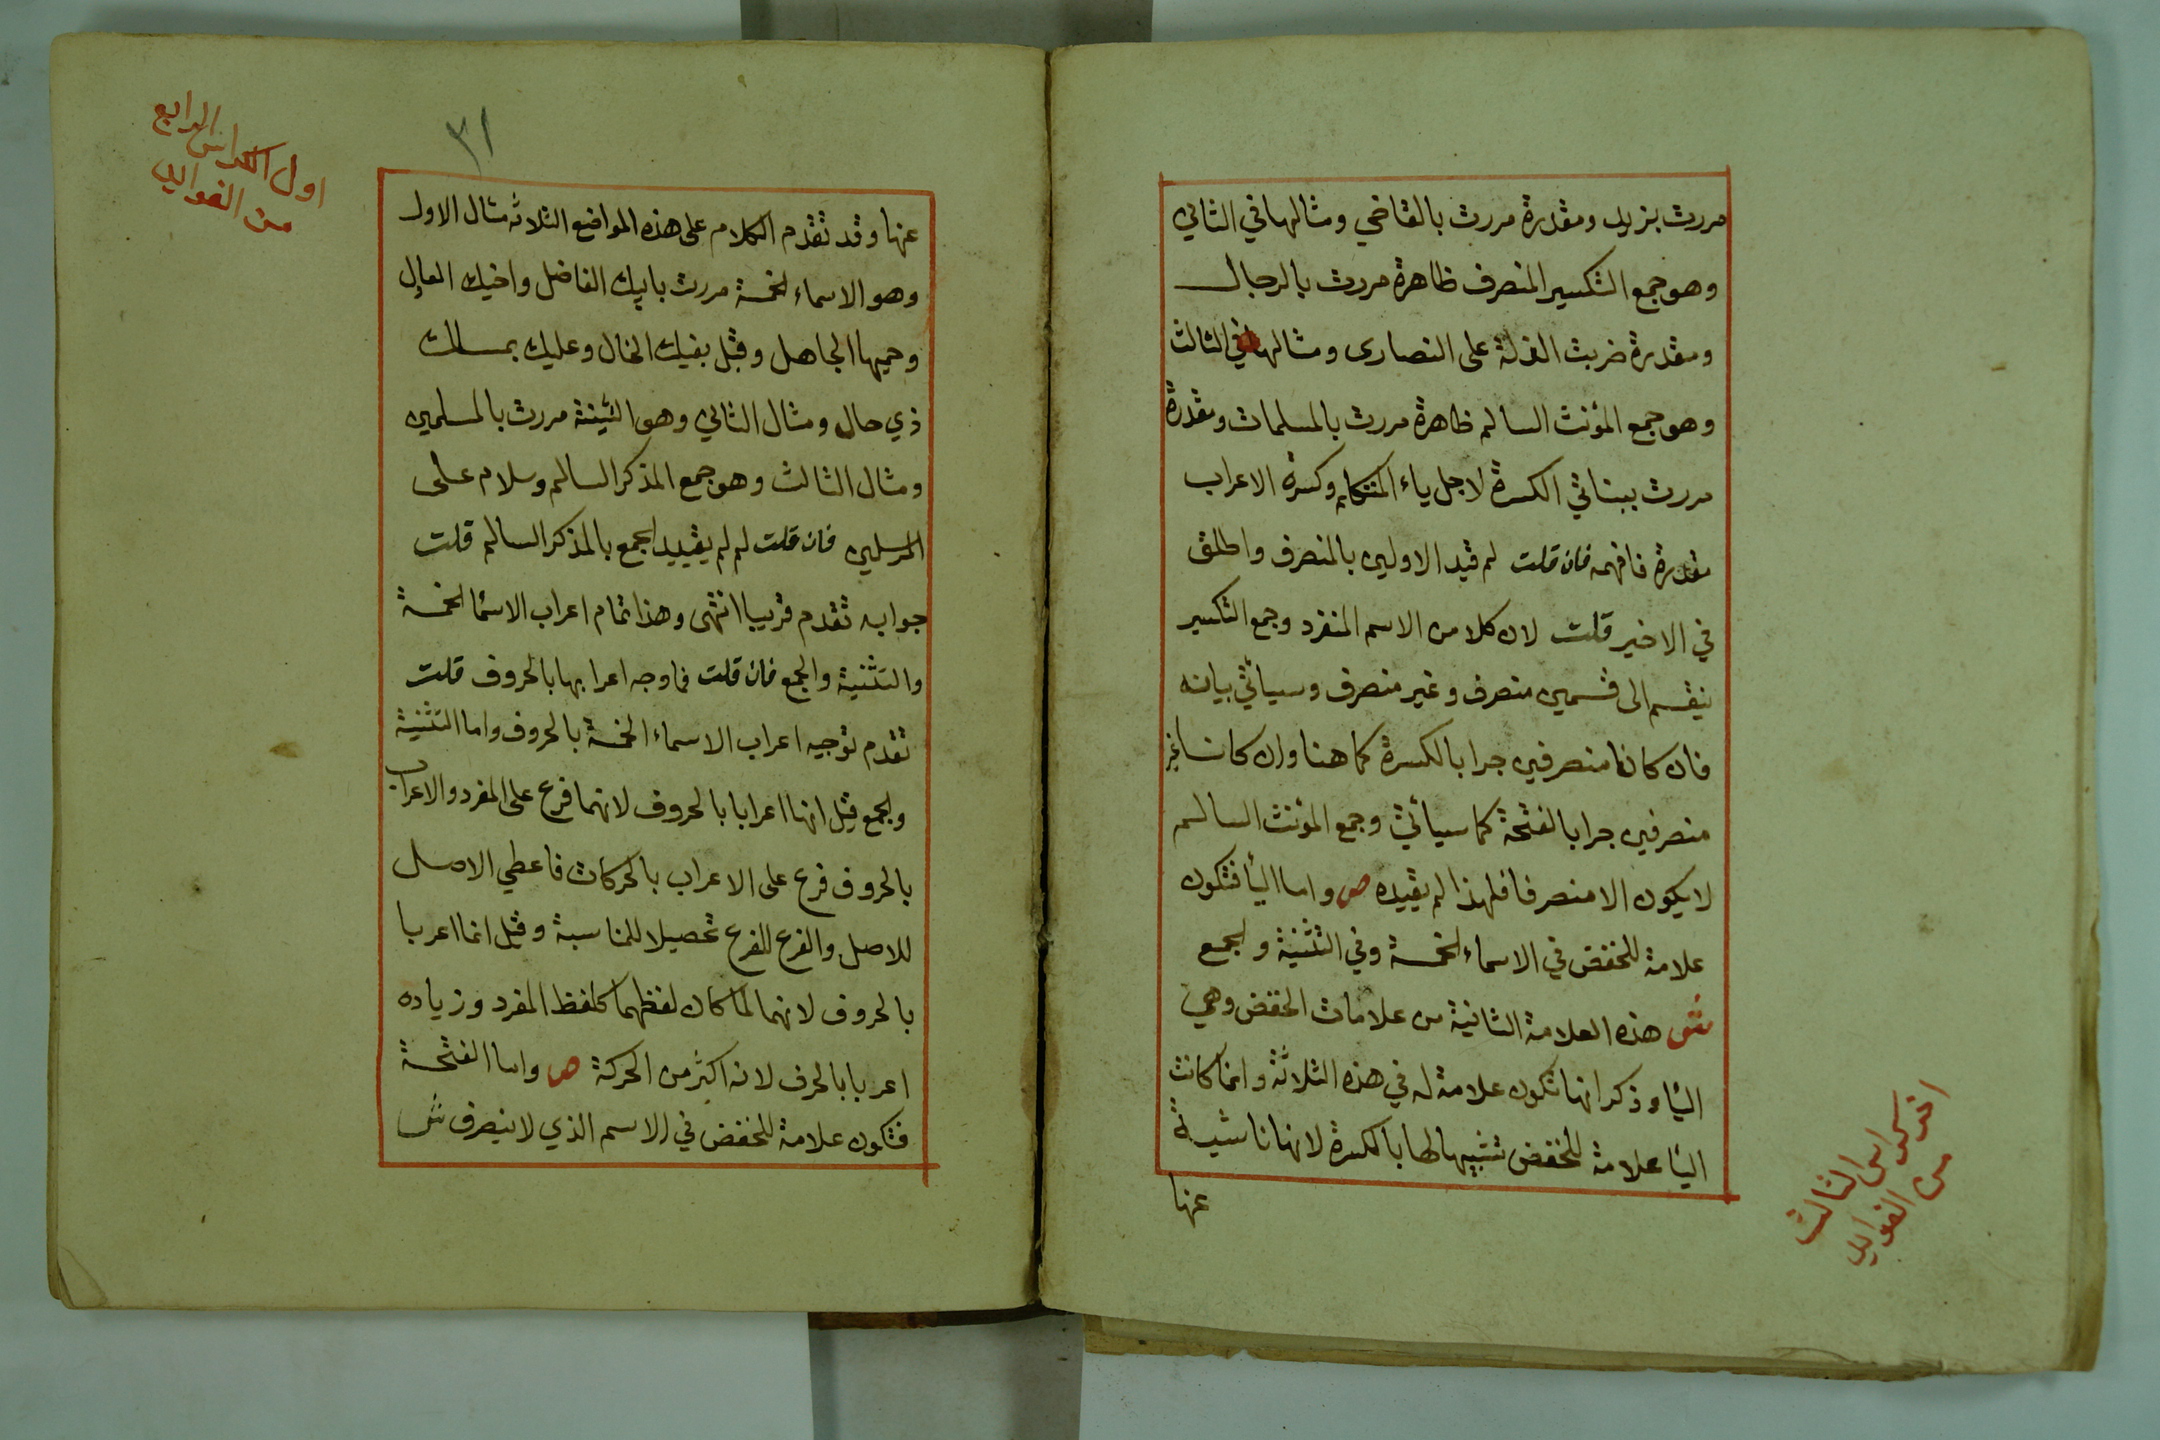 مررت بزيد ومقدرة مررت بالقاضي ومثالها في الثاني
وهو جمع التكسير المنصرف ظاهرة مررت بالرجال
ومقدرة ضربت الذلة على النصارى ومثالها في الثالث
وهو جمع المؤنث السالم ظاهرة مررت بالمسلمات ومقدرة
مررت ببناتي الكسرة لاجل ياء المتكلم وكسرة الاعراب
مقدرة فافهمه فان قلت لم قيد الاولين بالمنصرف واطلق
في الاخير قلت لان كلا من الاسم المنفرد وجمع التكسير
ينقسم الى قسمين منصرف وغير منصرف وسيأتي بيانه
فان كانا منصرفين جرا بالكسرة كما هنا وان كانا غير
منصرفين جرا بالفتحة كما سيأتي وجمع المؤنث السالم
لا يكون الا منصرفا فلهذا لم يقيده ص واما اليأ فتكون
علامة للخفض في الاسماء الخمسة وفي التثنية والجمع
ش هذه العلامة الثانية من علامات الخفض وهي
اليأ وذكر انها تكون علامة له في هذه الثلاثة وانما كانت
اليأ علامة للخفض تشبيها لها بالكسرة لانها ناشية
عنها
اخر كراس الثالث
من الفوايد
اول الكراس الرابع
من الفوايد
٣١
عنها وقد تقدم الكلام على هذه المواضع الثلاثه مثال الاول
وهو الاسماء الخمسة مررت بابيك الفاضل واخيك العادل
وحميها الجاهل وقبل بفيك الخال وعليك بمسالك
ذي حال ومثال الثاني وهو التثينة مررت بالمسلمين
ومثال الثالث وهو جمع المذكر السالم وسلام على
المرسلين فان قلت لم لم يقيد الجمع بالمذكر السالم قلت
جوابه تقدم قريبا انتهى وهذا تمام اعراب الاسما الخمسة
والتثنية والجمع فان قلت فما وجه اعرابها بالحروف قلت
تقدم توجيه اعراب الاسماء الخمسة بالحروف واما التثنية
والجمع قيل انما اعرابا بالحروف لانهما فرع على المفرد والاعراب
بالحروف فرع على الاعراب بالحركات فاعطي الاصل
للاصل والفرع للفرع تحصيلا للمناسبة وقيل انما اعربا
بالحروف لانهما لما كان لفظهما كلفظ المفرد وزياده
اعربا بالحرف لانه اكثر من الحركة ص واما الفتحة
فتكون علامة للخفض في الاسم الذي لا ينصرف ش